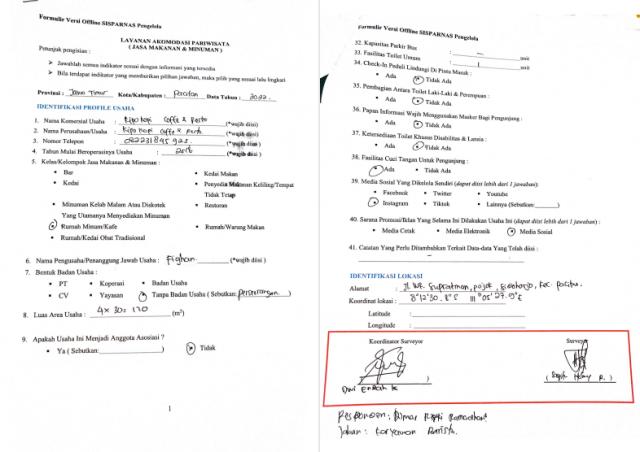 Formulir Versi Offline SISPARNAS Pengelola
LAYANAN AKOMODASI PARIWISATA
( JASA MAKANAN & MINUMAN )
Petunjuk pengisian :
➢ Jawablah semua indikator sesuai dengan informasi yang tersedia
➢ Bila terdapat indikator yang memberikan pilihan jawaban, maka pilih yang sesuai lalu lingkari
Provinsi : Jawa Timur Kota/Kabupaten : Pacitan Data Tahun : 2022
IDENTIFIKASI PROFILE USAHA
1. Nama Komersial Usaha : coffe & Resto (*wajib diisi)
2. Nama Perusahaan/Usaha : coffe & Resto (*wajib diisi)
3. Nomor Telepon : (*wajib diisi)
4. Tahun Mulai Beroperasinya Usaha : (*wajib diisi)
5. Kelas/Kelompok Jasa Makanan & Minuman :
• Bar
• Kedai
• Minuman Kelab Malam Atau Diskotek Yang Utamanya Menyediakan Minuman
• Rumah Minum/Kafe
• Rumah/Kedai Obat Tradisional
• Kedai Makan
• Penyedia Makanan Keliling/Tempat
Tidak Tetap
• Restoran
• Rumah/Warung Makan
6. Nama Pengusaha/Penanggung Jawab Usaha : (*wajib diisi )
7. Bentuk Badan Usaha :
• PT • Koperasi • Badan Usaha
• CV • Yayasan • Tanpa Badan Usaha ( Sebutkan: Perseorangan )
8. Luas Area Usaha : 4 x 30 = 120 (m²)
9. Apakah Usaha Ini Menjadi Anggota Asosiasi ?
• Ya ( Sebutkan: ) • Tidak
1
Formulir Versi Offline SISPARNAS Pengelola
32. Kapasitas Parkir Bus : — unit
33. Fasilitas Toilet Umum : 1 unit
34. Check-In Peduli Lindungi Di Pintu Masuk :
• Ada • Tidak Ada
35. Pembagian Antara Toilet Laki-Laki & Perempuan :
• Ada • Tidak Ada
36. Papan Informasi Wajib Menggunakan Masker Bagi Pengunjung :
• Ada • Tidak Ada
37. Ketersediaan Toilet Khusus Disabilitas & Lansia :
• Ada • Tidak Ada
38. Fasilitas Cuci Tangan Untuk Pengunjung :
• Ada • Tidak Ada
39. Media Sosial Yang Dikelola Sendiri (dapat diisi lebih dari 1 jawaban):
• Facebook • Twitter • Youtube
• Instagram • Tiktok • Lainnya (Sebutkan: )
40. Sarana Promosi/Iklan Yang Selama Ini Dilakukan Usaha Ini (dapat diisi lebih dari 1 jawaban) :
• Media Cetak • Media Elektronik • Media Sosial
41. Catatan Yang Perlu Ditambahkan Terkait Data-data Yang Telah diisi :
IDENTIFIKASI LOKASI
Alamat : Jl. WR. Supratman,
Koordinat lokasi : 8°12'30.8"S 111°05'27.9"E
Latitude :
Longitude :
Koordinator Surveyor
Surveyor
Dwi Endah
Responden :
Jabatan : Karyawan Barista.